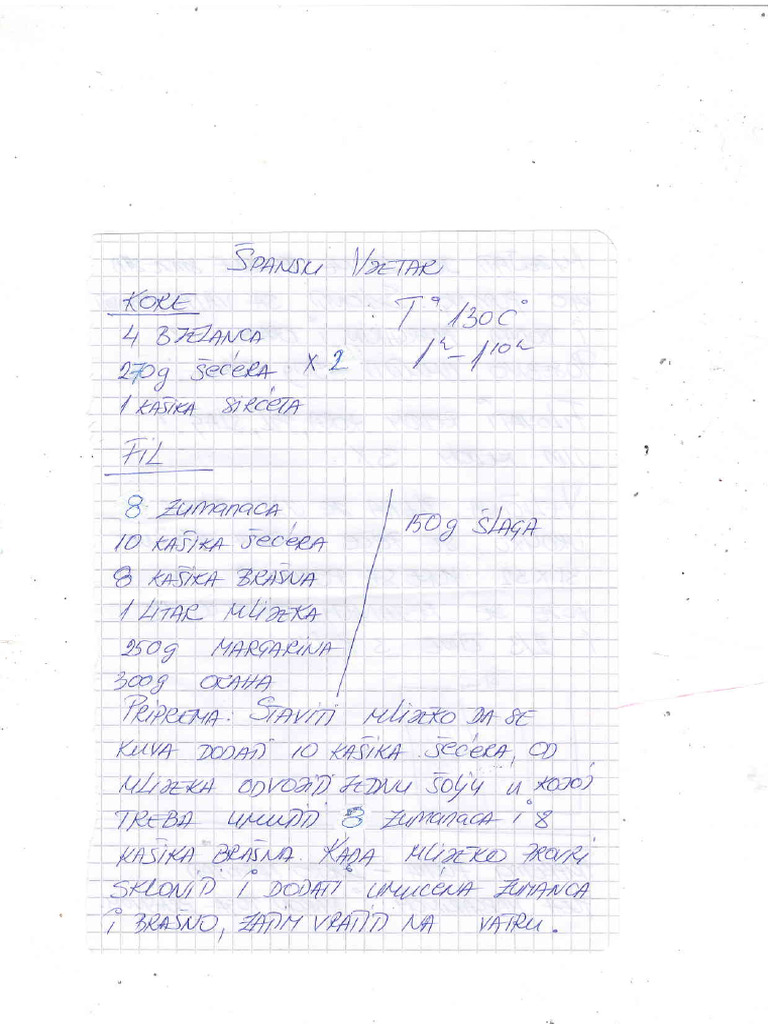 ŠPANSKI VJETAR
KORE
T° 130C°
4 BJELANCA
1h - 1 10h
270g ŠEĆERA X 2
1 KAŠIKA SIRĆETA
FIL
8 ŽUMANACA
150g ŠLAGA
10 KAŠIKA ŠEĆERA
8 KAŠIKA BRAŠNA
1 LITAR MLIJEKA
250g MARGARINA
300g ORAHA
PRIPREMA: STAVITI MLIJEKO DA SE
KUVA DODATI 10 KAŠIKA ŠEĆERA, OD
MLIJEKA ODVOJITI JEDNU ŠOLJU U KOJOJ
TREBA UMUTITI 8 ŽUMANACA I 8
KAŠIKA BRAŠNA. KADA MLIJEKO PROVRI
SKLONITI I DODATI UMUĆENA ŽUMANCA
I BRAŠNO, ZATIM VRATITI NA VATRU.